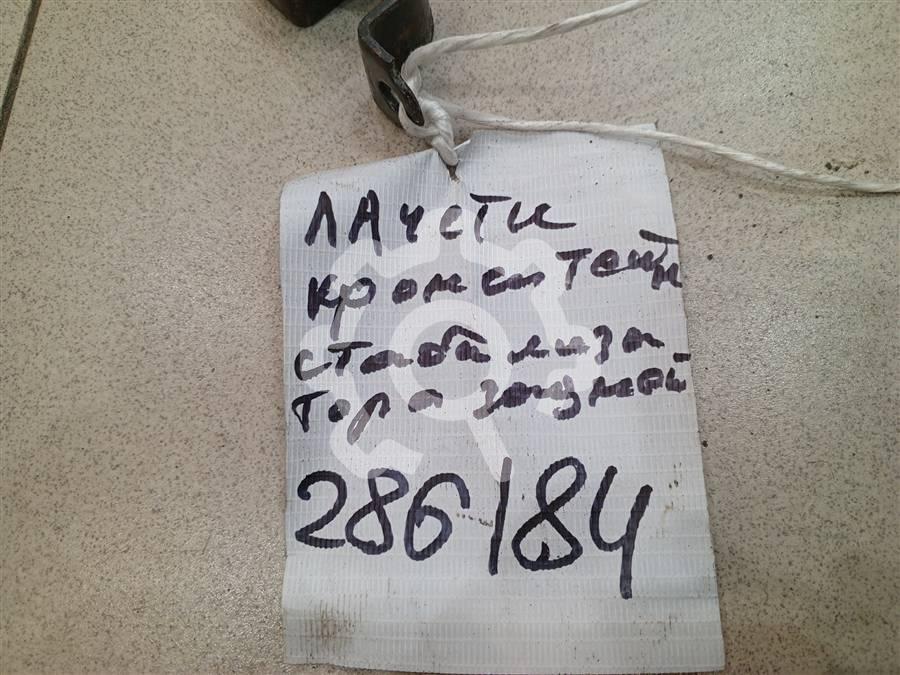 ЛАЧЕТИ
кронштейн
стабилиза
тора задний
286/84